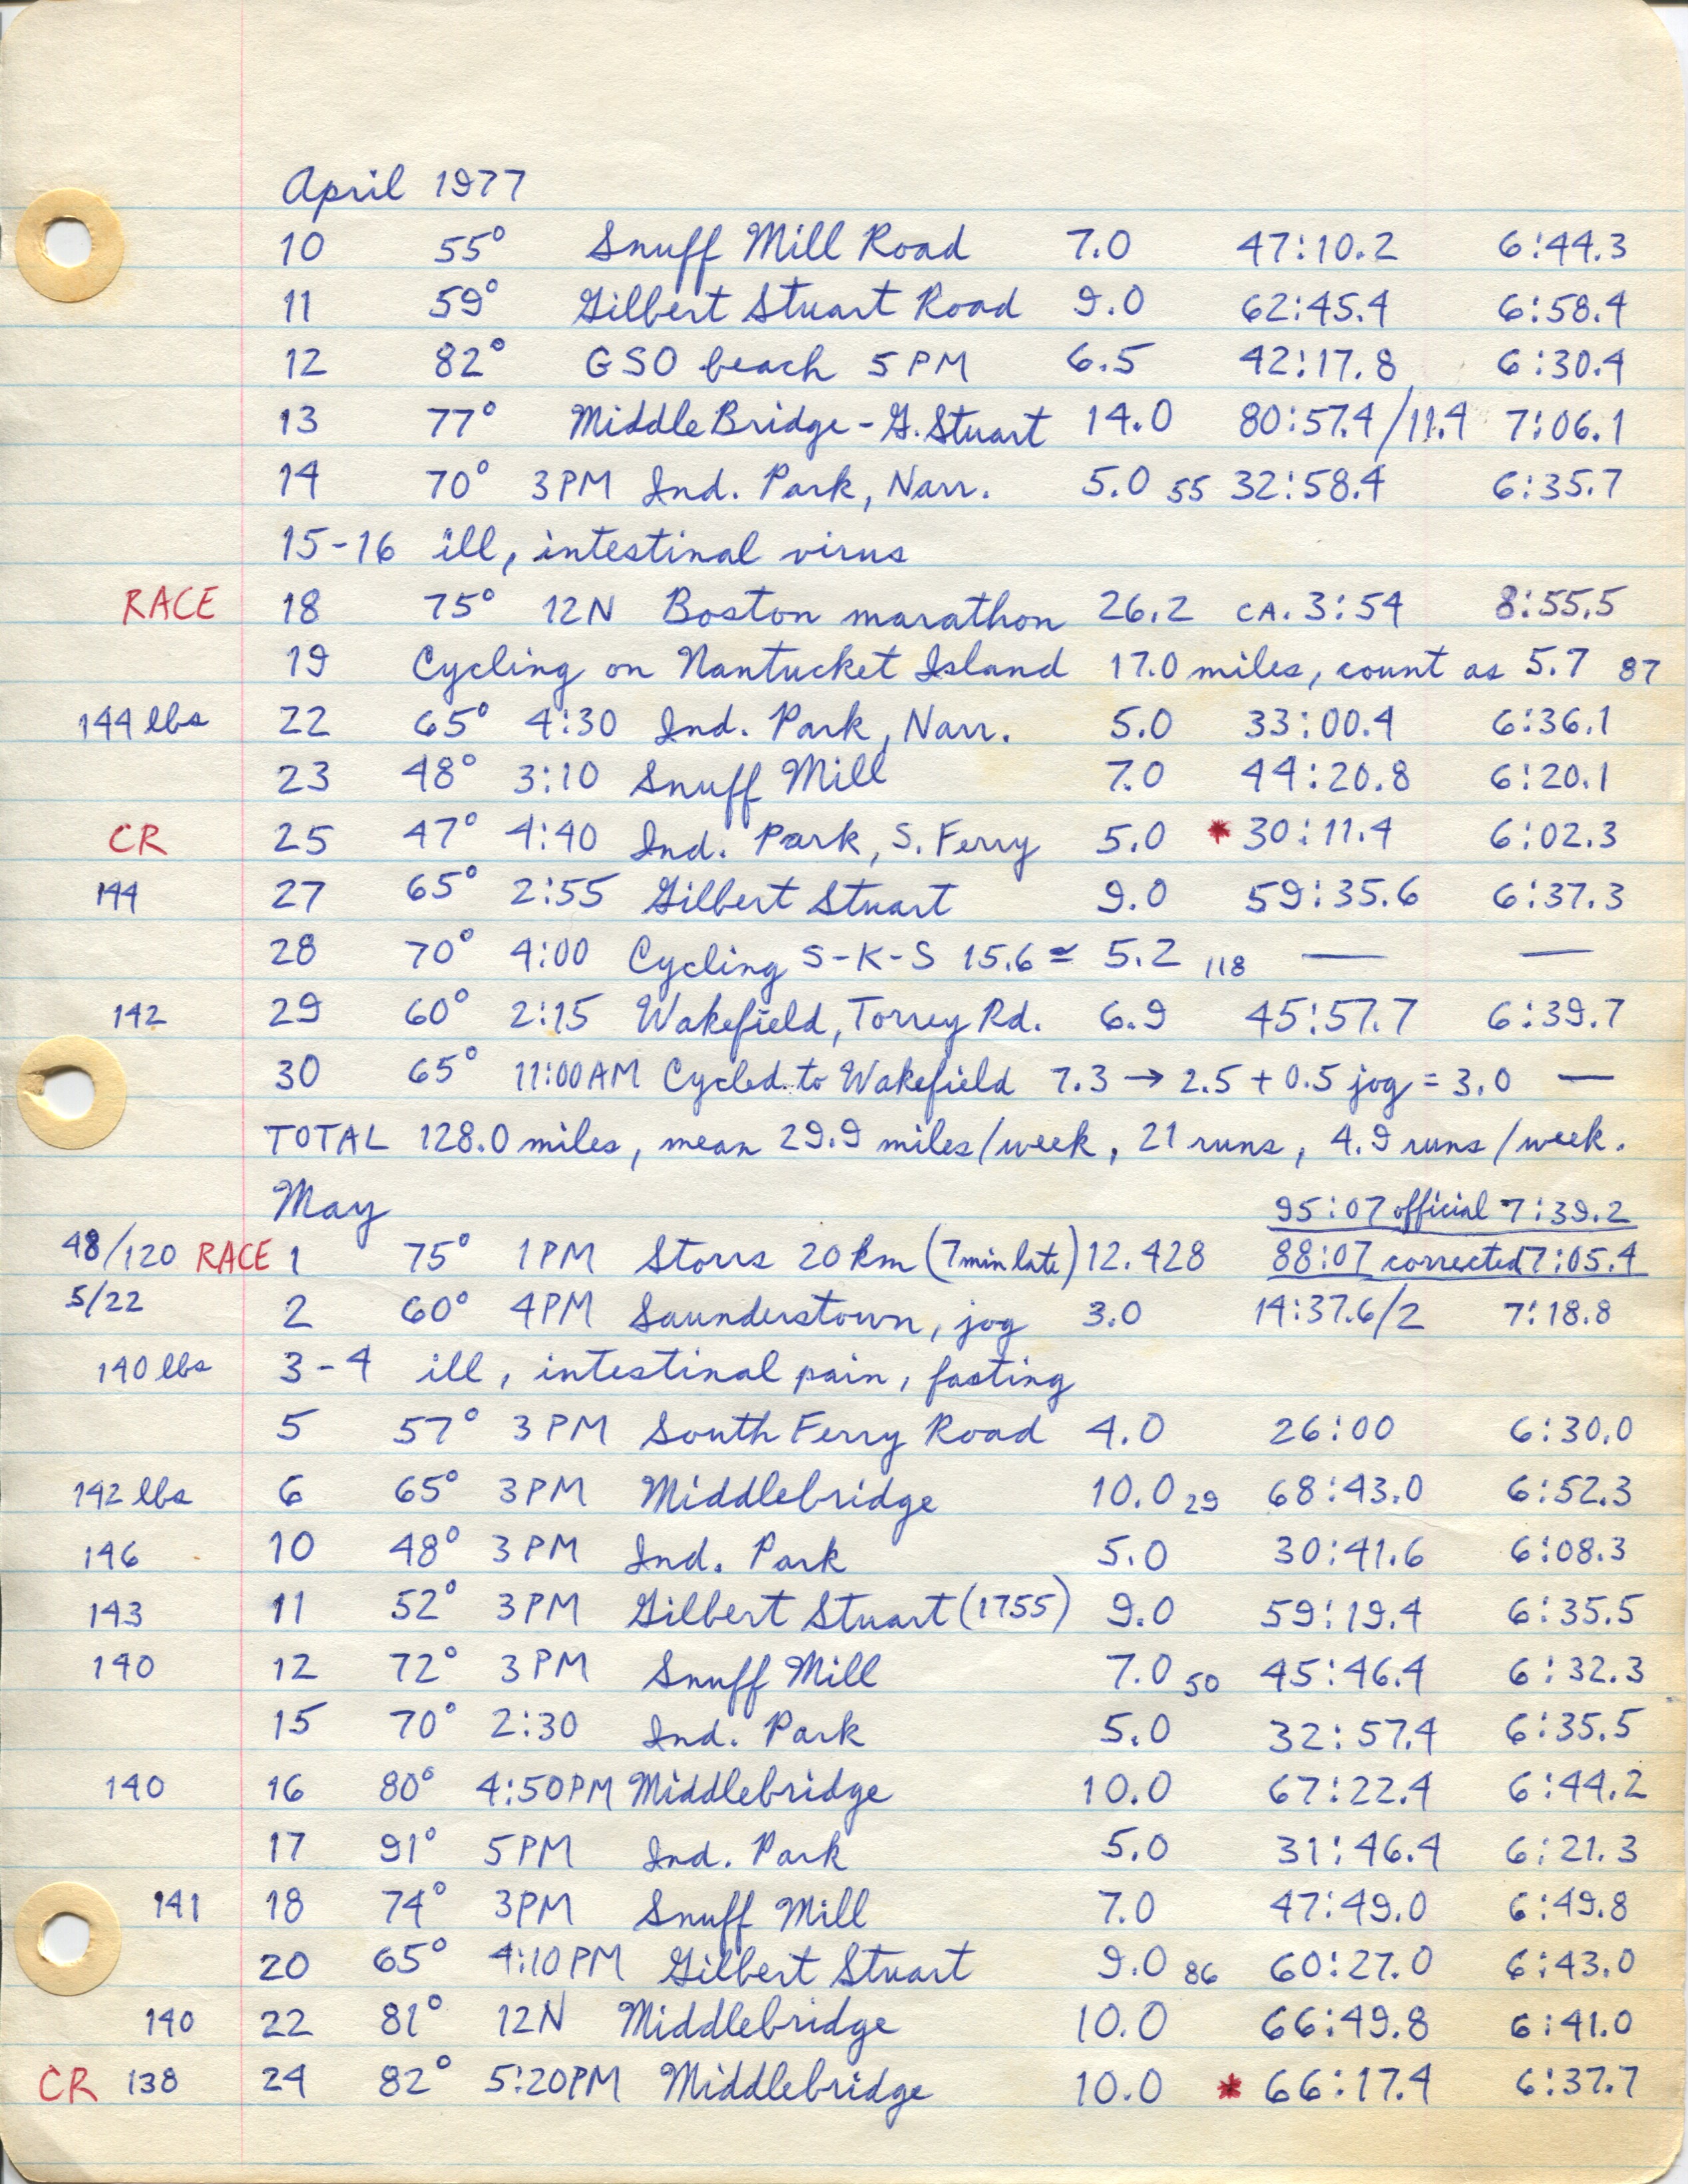 April 1977
10 55° Snuff Mill Road 7.0 47:10.2 6:44.3
11 59° Gilbert Stuart Road 9.0 62:45.4 6:58.4
12 82° GSO beach 5 PM 6.5 42:17.8 6:30.4
13 77° Middle Bridge - G. Stuart 14.0 80:57.4/11.4 7:06.1
14 70° 3PM Ind. Park, Narr. 5.0 55 32:58.4 6:35.7
15-16 ill, intestinal virus
RACE 18 75° 12N Boston marathon 26.2 CA. 3:54 8:55.5
19 Cycling on Nantucket Island 17.0 miles, count as 5.7 87
144 lbs 22 65° 4:30 Ind. Park, Narr. 5.0 33:00.4 6:36.1
23 48° 3:10 Snuff Mill 7.0 44:20.8 6:20.1
CR 25 47° 4:40 Ind. Park, S. Ferry 5.0 * 30:11.4 6:02.3
144 27 65° 2:55 Gilbert Stuart 9.0 59:35.6 6:37.3
28 70° 4:00 Cycling S-K-S 15.6 ≃ 5.2 118 — —
142 29 60° 2:15 Wakefield, Torrey Rd. 6.9 45:57.7 6:39.7
30 65° 11:00AM Cycled to Wakefield 7.3 → 2.5 + 0.5 jog = 3.0 —
TOTAL 128.0 miles, mean 29.9 miles/week, 21 runs, 4.9 runs/week.
May 95:07 official 7:39.2
48/120 RACE 1 75° 1PM Storrs 20 km (7 min late) 12.428 88:07 corrected 7:05.4
5/22 2 60° 4PM Saunderstown, jog 3.0 14:37.6/2 7:18.8
140 lbs 3-4 ill, intestinal pain, fasting
5 57° 3 PM South Ferry Road 4.0 26:00 6:30.0
142 lbs 6 65° 3PM Middlebridge 10.0 29 68:43.0 6:52.3
146 10 48° 3 PM Ind. Park 5.0 30:41.6 6:08.3
143 11 52° 3PM Gilbert Stuart (1755) 9.0 59:19.4 6:35.5
140 12 72° 3 PM Snuff Mill 7.0 50 45:46.4 6:32.3
15 70° 2:30 Ind. Park 5.0 32:57.4 6:35.5
140 16 80° 4:50PM Middlebridge 10.0 67:22.4 6:44.2
17 91° 5PM Ind. Park 5.0 31:46.4 6:21.3
141 18 74° 3PM Snuff Mill 7.0 47:49.0 6:49.8
20 65° 4:10PM Gilbert Stuart 9.0 86 60:27.0 6:43.0
140 22 81° 12N Middlebridge 10.0 66:49.8 6:41.0
CR 138 24 82° 5:20PM Middlebridge 10.0 * 66:17.4 6:37.7